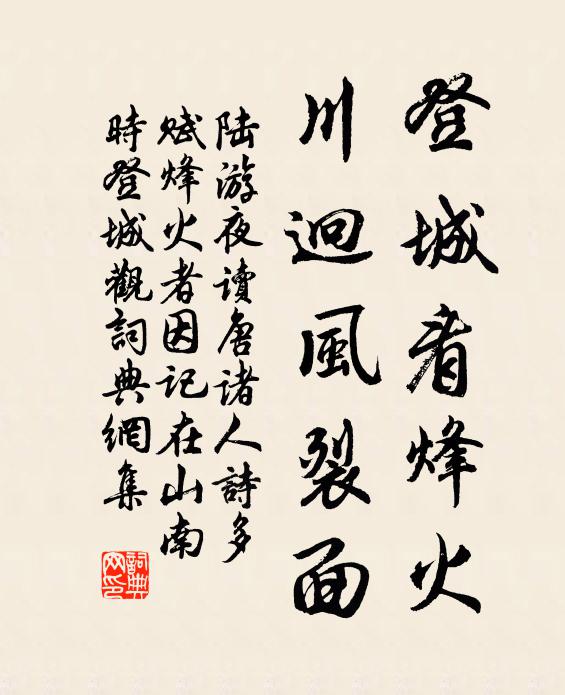 登城看烽火
川迥風裂面
陸游夜讀唐諸人詩多
賦烽火者因記在山南
時登城觀詞典網集
詞典
网印